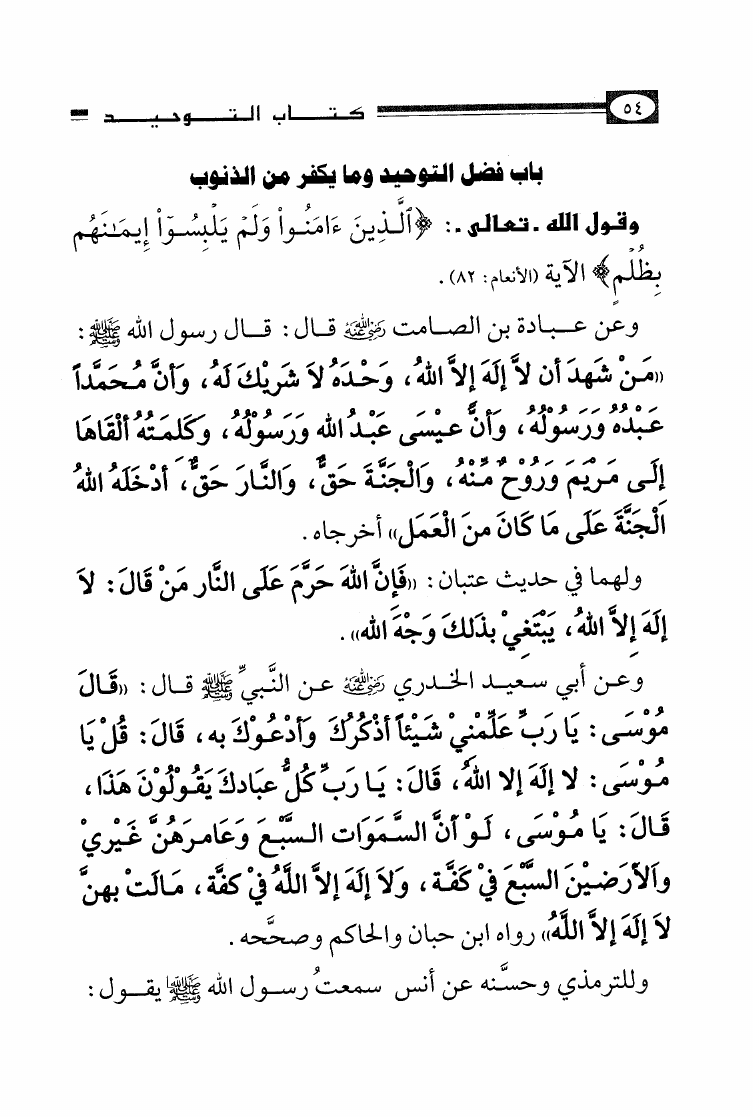 ٥٤ كتاب التوحيد
باب فضل التوحيد وما يكفر من الذنوب
وقول الله ـ تعالى ـ: ﴿ٱلَّذِينَ ءَامَنُوا۟ وَلَمْ يَلْبِسُوٓا۟ إِيمَـٰنَهُم
بِظُلْمٍ﴾ الآية (الأنعام: ٨٢).
وعن عبادة بن الصامت رضي الله عنه قال: قال رسول الله ﷺ:
«مَنْ شَهِدَ أن لاَّ إِلَهَ إلاَّ اللهُ، وَحْدَهُ لاَ شَرِيْكَ لَهُ، وَأنَّ مُحَمَّداً
عَبْدُهُ وَرَسُوْلُهُ، وَأنَّ عِيْسَى عَبْدُ اللهِ وَرَسُوْلُهُ، وَكَلِمَتُهُ ألْقَاهَا
إلَى مَرْيَمَ وَرُوْحٌ مِّنْهُ، وَالْجَنَّةَ حَقٌّ، وَالنَّارَ حَقٌّ، أدْخَلَهُ اللهُ
الْجَنَّةَ عَلَى مَا كَانَ مِنَ الْعَمَلِ» أخرجاه.
ولهما في حديث عتبان: «فَإِنَّ اللهَ حَرَّمَ عَلَى النَّارِ مَنْ قَالَ: لاَ
إِلَهَ إِلاَّ اللهُ، يَبْتَغِيْ بِذَلِكَ وَجْهَ اللهِ».
وعن أبي سعيد الخدري رضي الله عنه عن النَّبيِّ ﷺ قال: «قَالَ
مُوْسَى: يَا رَبِّ عَلِّمْنِيْ شَيْئاً أذْكُرُكَ وَأدْعُوْكَ بِهِ، قَالَ: قُلْ يَا
مُوْسَى: لا إلَهَ إلا اللهُ، قَالَ: يَا رَبِّ كُلُّ عِبَادِكَ يَقُوْلُوْنَ هَذَا،
قَالَ: يَا مُوْسَى، لَوْ أنَّ السَّمَوَاتِ السَّبْعَ وَعَامِرَهُنَّ غَيْرِيْ
وَالأرَضِيْنَ السَّبْعَ فِيْ كَفَّةٍ، وَلاَ إِلَهَ إلاَّ اللَّهُ فِيْ كفَّةٍ، مَالَتْ بِهِنَّ
لاَ إِلَهَ إلاَّ اللَّهُ» رواه ابن حبان والحاكم وصحَّحه.
وللترمذي وحسَّنه عن أنس سمعتُ رسول الله ﷺ يقول: